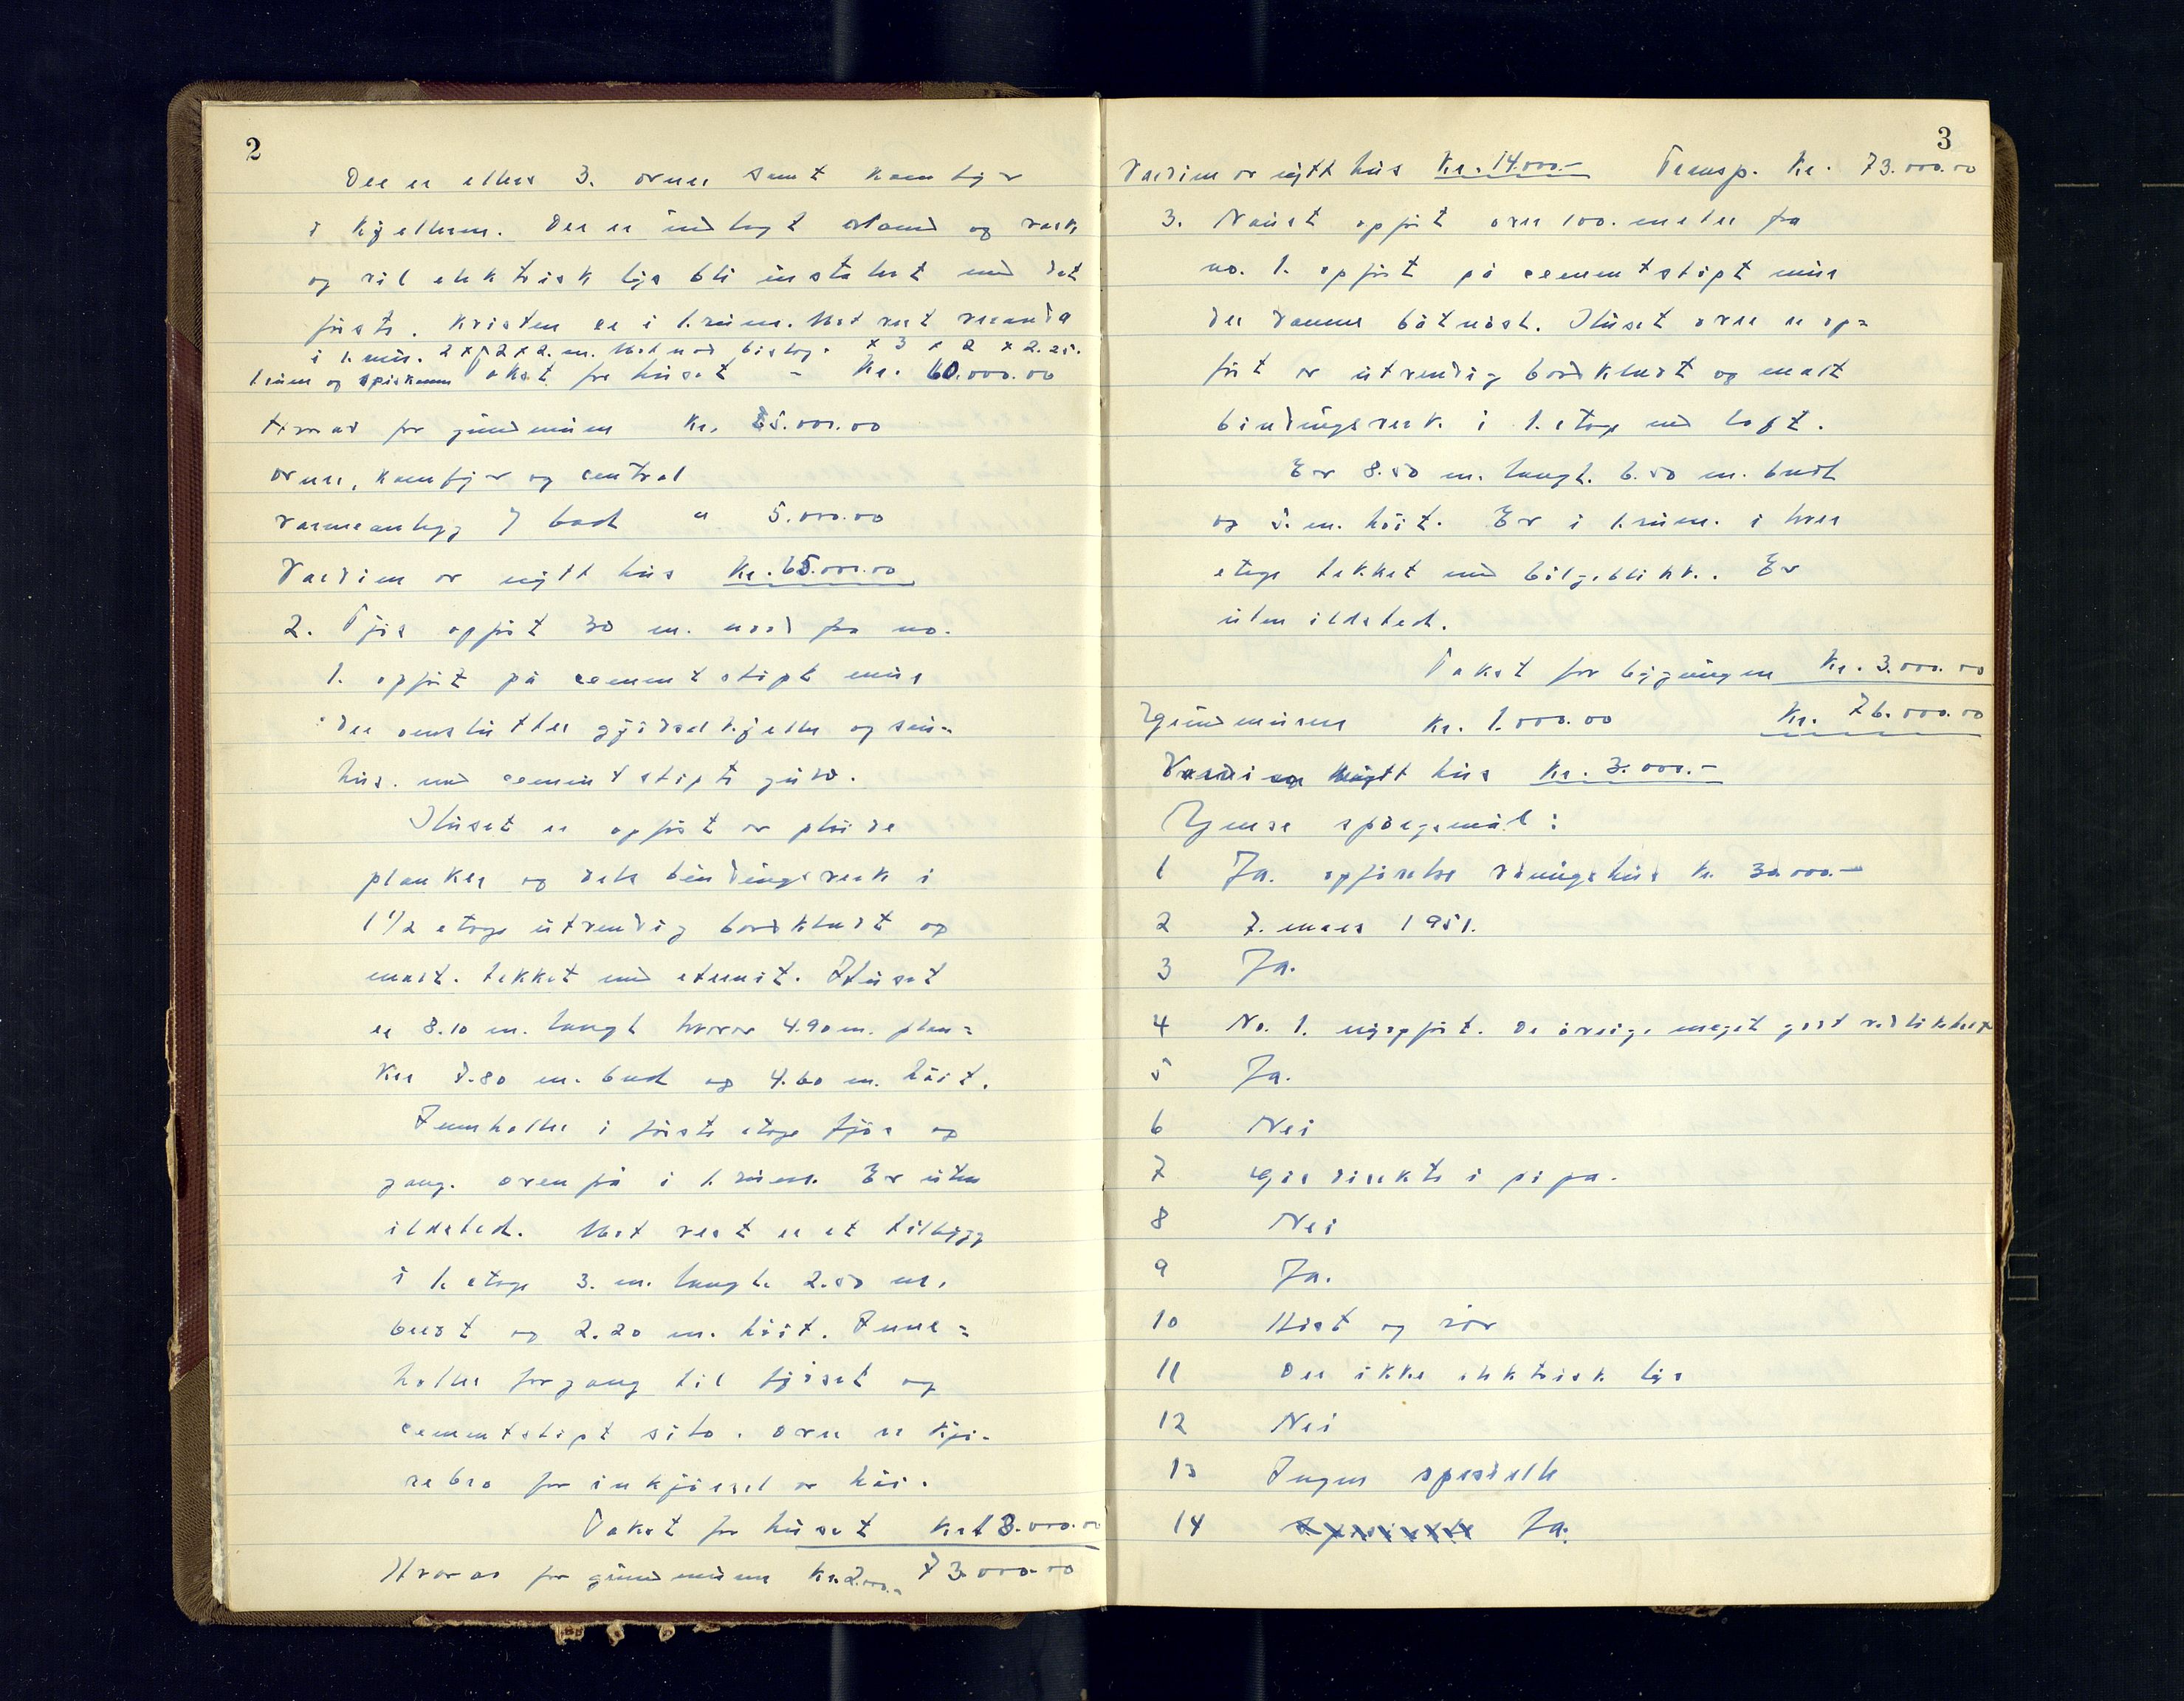 2
Der er ellers 3. ovner samt komfyr
i kjelleren. Der er indlagt vand og vask
og vil elektrisk lys bli instalert med det
første. Kvisten er i 1. rum. Mot vest veranda
i 1. mur. 2 x 2 x 2. m. Mot nord bislag. x 3 x 2 x 2.25.
1 rum og spiskammer Takst for huset - Kr. 60.000.00
hvorav for grundmuren Kr. 15.000.00
ovner, komfyr og central
varmeanlegg 7 bad " 5.000.00
Værdien av nytt hus Kr. 65.000.00
2. Fjøs opført 30 m. nord fra no.
1. opført på cementstøpt mur
der omslutter gjødselkjeller og sau=
hus. med cementstøpt gulv.
Huset er opført av pløide
planker og dels bindingsverk i
1 1/2 etage utvendig bordklædt og
malt. tekket med eternit. Huset
er 8.10 m. langt hvorav 4.90 m. plan=
ker 7.80 m. bred og 4.60 m. høit.
Inneholder i første etage fjøs og
gang. ovenpå i 1. rum. Er uten
ildsted. Mot vest er et tilbygg
i 1. etage 3. m. langt. 2.50 m.
bredt og 2.20 m. høit. Inne=
holder forgang til fjøset og
cementstøpt silo. over er kjø-
rebro for inkjørsel av høi.
Takst for huset Kr. 13.000.00
Hvorav for grundmuren Kr. 2.000.- 73.000.00
3
Værdien av nytt hus Kr. 14.000.- Transp. Kr. 73.000.00
3. Naust opført over 100. meter fra
no. 1. opført på cementstøpt mur
der danner båtnøst. Huset over er op=
ført av utvendig bordklædt og malt
bindingsverk. i 1. etage med loft.
Er 8.50 m. langt. 6.50 m. bredt
og 5. m. høit. Er i 1. rum. i hver
etage tekket med bølgeblikk.. Er
uten ildsted.
Takst for bygningen Kr. 3.000.00
Grundmuren Kr. 1.000.00 Kr. 76.000.00
Værdi av nytt hus Kr. 3.000.-
Egense spørgsmål:
1 Ja. opførelse våningshus Kr. 30.000.-
2 7. mars 1951.
3 Ja.
4 No. 1. nyopført. De øvrige meget godt vedlikeholdt
5 Ja.
6 Nei
7 Går direkte i pipa.
8 Nei
9 Ja.
10 Høst og vår
11 Der ikke elektrisk lys
12 Nei
13 Ingen spesielle
14 Ja.